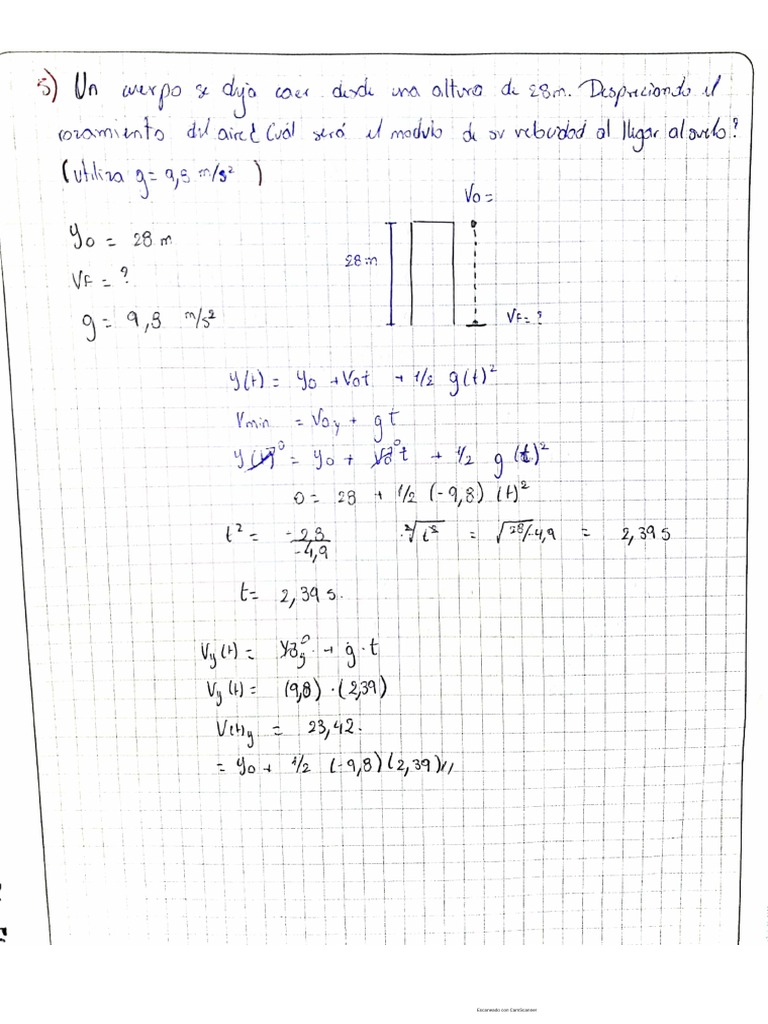 5) Un cuerpo se deja caer desde una altura de 28m. Despreciando el
rozamiento del aire ¿Cuál será el modulo de su velocidad al llegar al suelo?
(utiliza g= 9,8 m/s²)
V0 =
y0 = 28 m
28 m
VF = ?
VF = ?
g = 9,8 m/s²
y(t) = y0 + V0t + 1/2 g(t)²
Vmin = V0y + gt
y(t)⁰ = y0 + V0⁰t + 1/2 g(t)²
0 = 28 + 1/2 (-9,8) (t)²
t² = -28/-4,9 ²√t² = √28/-4,9 = 2,39 s
t = 2,39 s.
Vy(t) = V0y⁰ + g·t
Vy(t) = (9,8)·(2,39)
V(t)y = 23,42.
= y0 + 1/2 (-9,8)(2,39)//
Escaneado con CamScanner